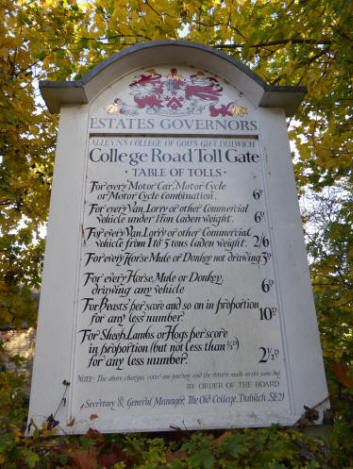 ESTATES GOVERNORS
ALLEYN'S COLLEGE OF GOD'S GIFT, DULWICH
College Road Toll Gate
· TABLE OF TOLLS ·
For every Motor Car, Motor Cycle
or Motor Cycle Combination. 6ᴰ
For every Van, Lorry or other Commercial
vehicle under 1 ton laden weight. 6ᴰ
For every Van, Lorry or other Commercial
vehicle from 1 to 5 tons laden weight. 2/6
For every Horse, Mule or Donkey not drawing 3ᴰ
For every Horse, Mule or Donkey,
drawing any vehicle 6ᴰ
For Beasts' per score and so on in proportion
for any less number. 10ᴰ
For Sheep, Lambs or Hogs per score
in proportion (but not less than ½ᴰ)
for any less number. 2½ᴰ
NOTE - The above charges cover one journey and the return on the same day
BY ORDER OF THE BOARD
Secretary & General Manager, The Old College, Dulwich, SE21